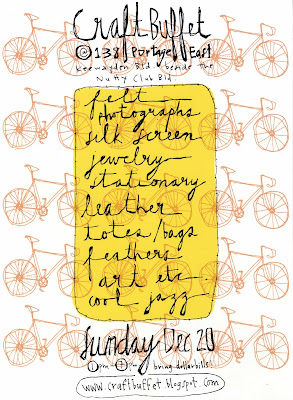 Craft Buffet
@ 138 Portage East
Keewayden Bld beside the
Nutty Club Bld
felt
photographs
silk screen
jewelry
stationary
leather
totes/bags
feathers
art etc.
cool jazz
Sunday Dec 20
1pm - 7pm bring dollar bills!
www.craftbuffet.blogspot.com